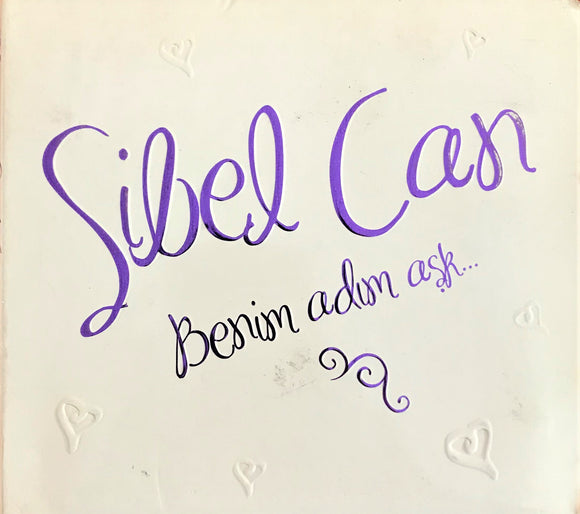 Sibel Can
Benim adım aşk...